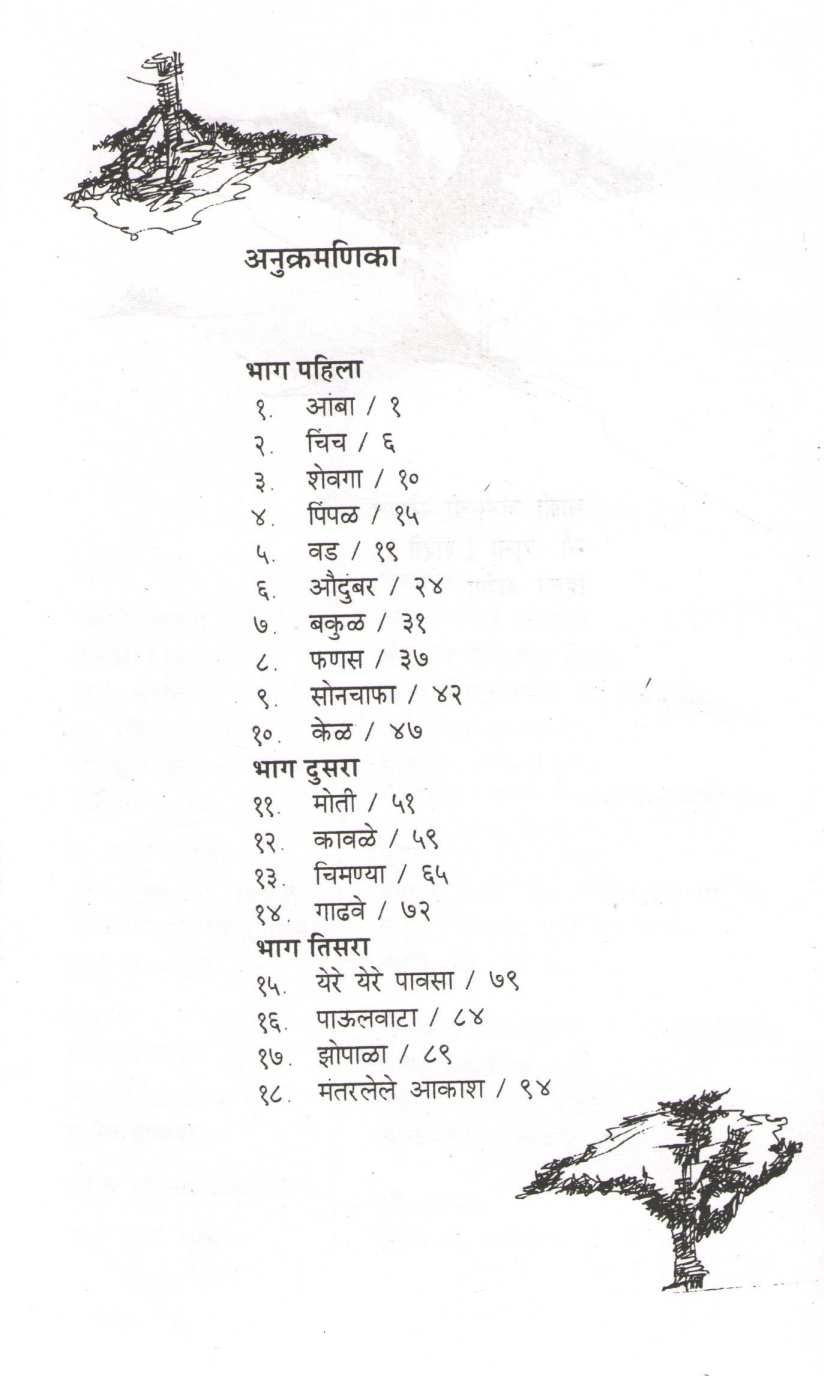 अनुक्रमणिका
भाग पहिला
१. आंबा / १
२. चिंच / ६
३. शेवगा / १०
४. पिंपळ / १५
५. वड / १९
६. औदुंबर / २४
७. बकुळ / ३१
८. फणस / ३७
९. सोनचाफा / ४२
१०. केळ / ४७
भाग दुसरा
११. मोती / ५१
१२. कावळे / ५९
१३. चिमण्या / ६५
१४. गाढवे / ७२
भाग तिसरा
१५. येरे येरे पावसा / ७९
१६. पाऊलवाटा / ८४
१७. झोपाळा / ८९
१८. मंतरलेले आकाश / ९४